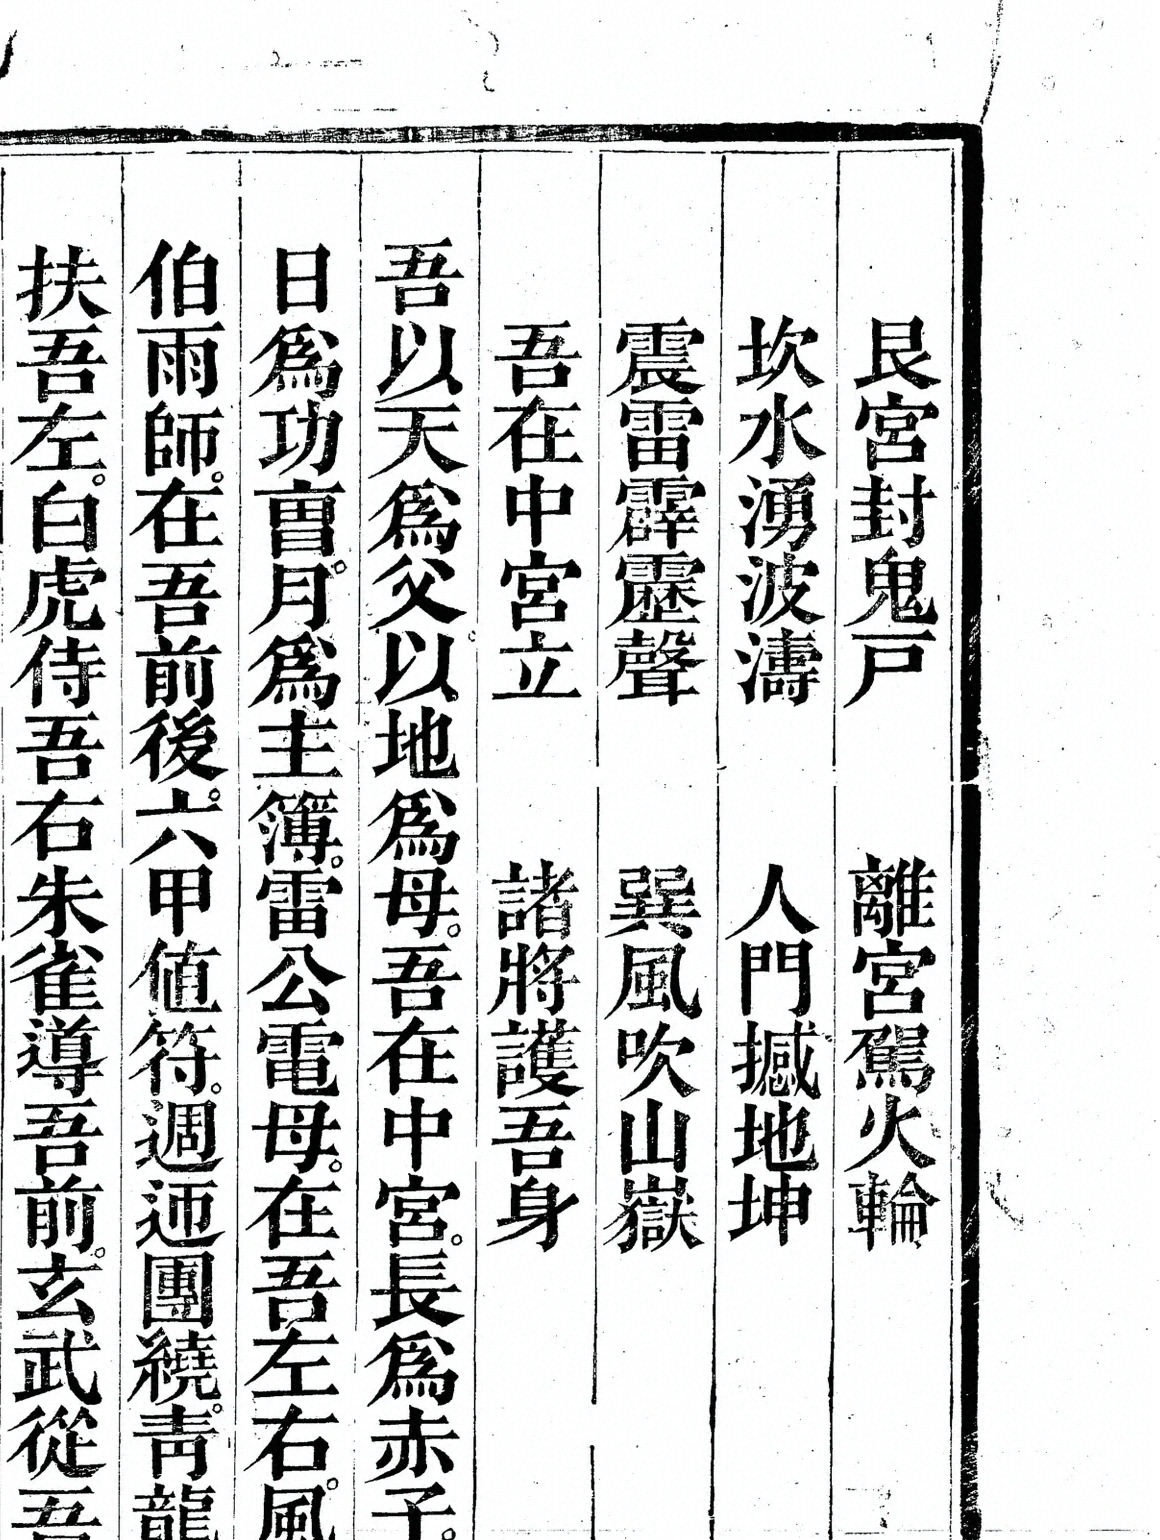 艮宮封鬼戸　離宮駕火輪
坎水湧波濤　人門撼地坤
震雷霹靂聲　巽風吹山嶽
吾在中宮立　諸將護吾身
吾以天爲父。以地爲母。吾在中宮。長爲赤子。
日爲功曺。月爲主簿。雷公電母。在吾左右。風
伯雨師。在吾前後。六甲値符。週迊團繞。靑龍
扶吾左。白虎侍吾右朱雀導吾前。玄武從吾